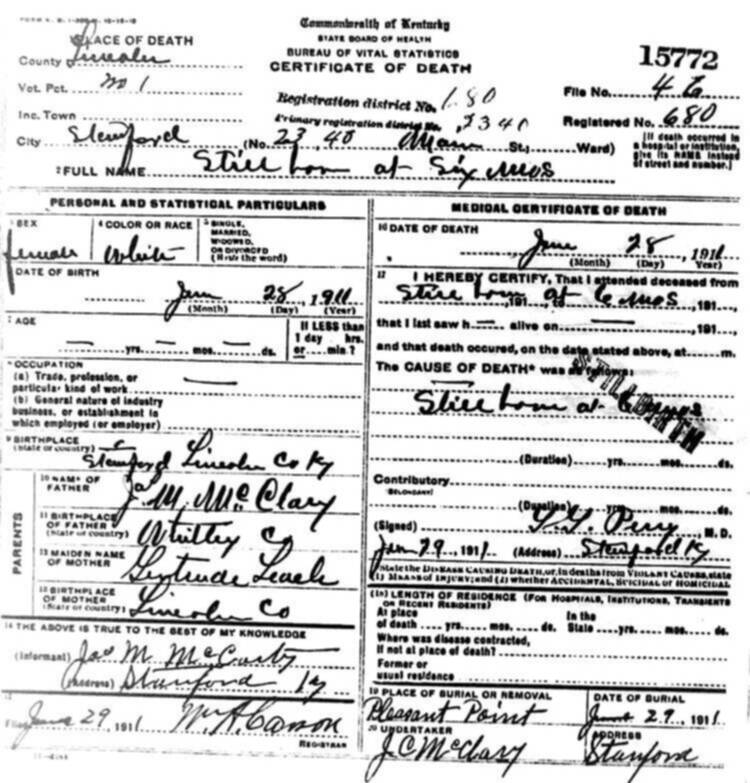 Commonwealth of Kentucky
STATE BOARD OF HEALTH
BUREAU OF VITAL STATISTICS
CERTIFICATE OF DEATH
15772
PLACE OF DEATH
County Lincoln
Vot. Pct. No 1
Inc. Town
City Stanford
Registration district No. 180
Primary registration district No. 2340
File No. 46
Registered No. 680
(No. 23, 40 St., Ward)
[If death occurred in a hospital or institution, give its NAME instead of street and number.]
2 FULL NAME Still born at Six mos
PERSONAL AND STATISTICAL PARTICULARS
3 SEX
female
4 COLOR OR RACE
White
5 SINGLE, MARRIED, WIDOWED, OR DIVORCED
(Write the word)
DATE OF BIRTH
28, 1911
(Month) (Day) (Year)
7 AGE
— yrs. — mos. — ds.
If LESS than 1 day hrs. or min.?
8 OCCUPATION
(a) Trade, profession, or particular kind of work —
(b) General nature of industry business, or establishment in which employed (or employer)
9 BIRTHPLACE
(State or country)
Stanford Lincoln Co Ky
PARENTS
10 NAME OF FATHER
Jas M. McClary
11 BIRTHPLACE OF FATHER
(State or country)
Whitley Co
12 MAIDEN NAME OF MOTHER
Gertrude
13 BIRTHPLACE OF MOTHER
(State or country)
Lincoln Co
14 THE ABOVE IS TRUE TO THE BEST OF MY KNOWLEDGE
(Informant) Jas M
(Address) Stanford Ky
15
Filed 29, 1911
REGISTRAR
MEDICAL CERTIFICATE OF DEATH
16 DATE OF DEATH
28, 1911
(Month) (Day) (Year)
17 I HEREBY CERTIFY, That I attended deceased from
Still born, 191 at 6 mos, 191
that I last saw h — alive on —, 191
and that death occured, on the date stated above, at m.
The CAUSE OF DEATH* was as follows:
Still born at 6 mos
STILLBIRTH
(Duration) yrs. mos. ds.
Contributory
(SECONDARY)
(Duration) yrs. mos. ds.
(Signed) M.D.
29, 1911 (Address) Stanford Ky
*State the DISEASE CAUSING DEATH, or, in deaths from VIOLENT CAUSES, state (1) MEANS OF INJURY; and (2) whether ACCIDENTAL, SUICIDAL or HOMICIDAL
(18) LENGTH OF RESIDENCE (FOR HOSPITALS, INSTITUTIONS, TRANSIENTS OR RECENT RESIDENTS)
At place of death yrs. mos. ds. In the State yrs. mos. ds.
Where was disease contracted,
if not at place of death?
Former or
usual residence
19 PLACE OF BURIAL OR REMOVAL
Pleasant Point
DATE OF BURIAL
29, 1911
20 UNDERTAKER
J C McClary
ADDRESS
Stanford